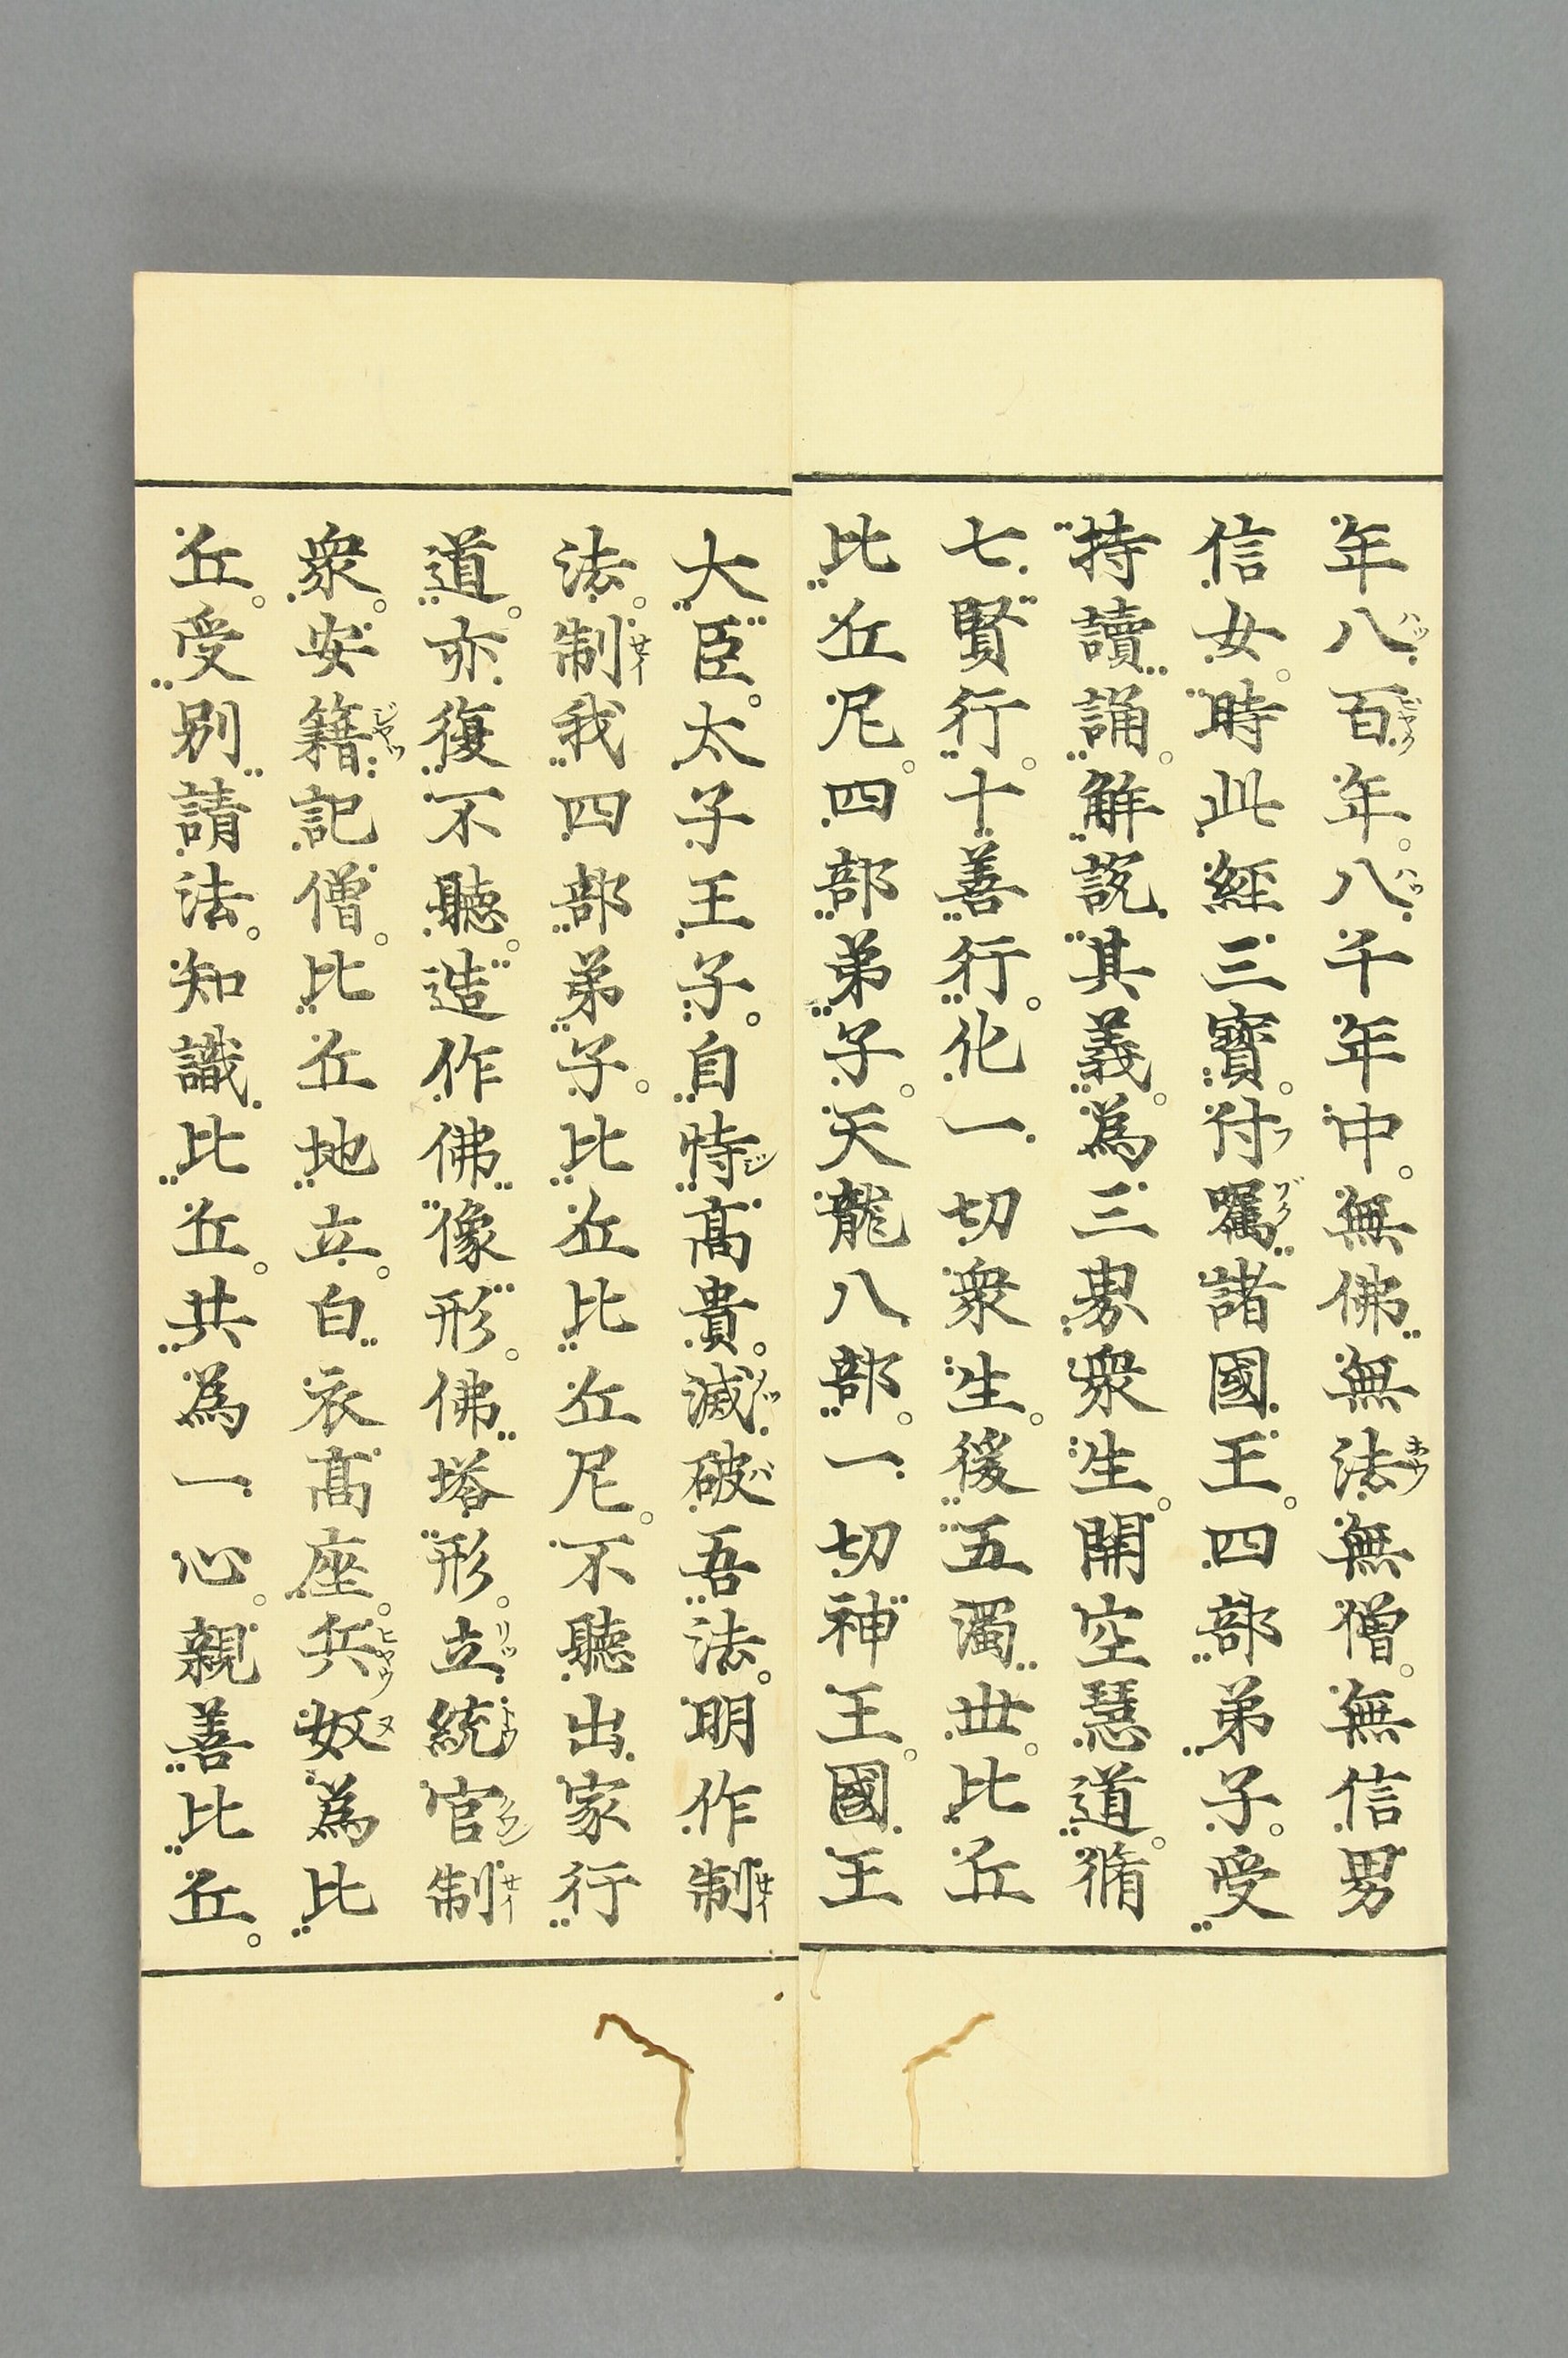 年八百年。八千年中。無佛無法無僧。無信男
信女。時此經三寶。付囑諸國王。四部弟子。受
持讀誦。解說其義。為三界衆生。開空慧道。脩
七賢行。十善行。化一切衆生。後五濁世。比丘
比丘尼。四部弟子。天龍八部。一切神王。國王
大臣。太子王子。自恃髙貴。滅破吾法。明作制
法。制我四部弟子。比丘比丘尼。不聽出家行
道。亦復不聽。造作佛像形。佛塔形。立統官制
衆。安籍記僧。比丘地立。白衣髙座。兵奴為比
丘。受別請法。知識比丘。共為一心。親善比丘。